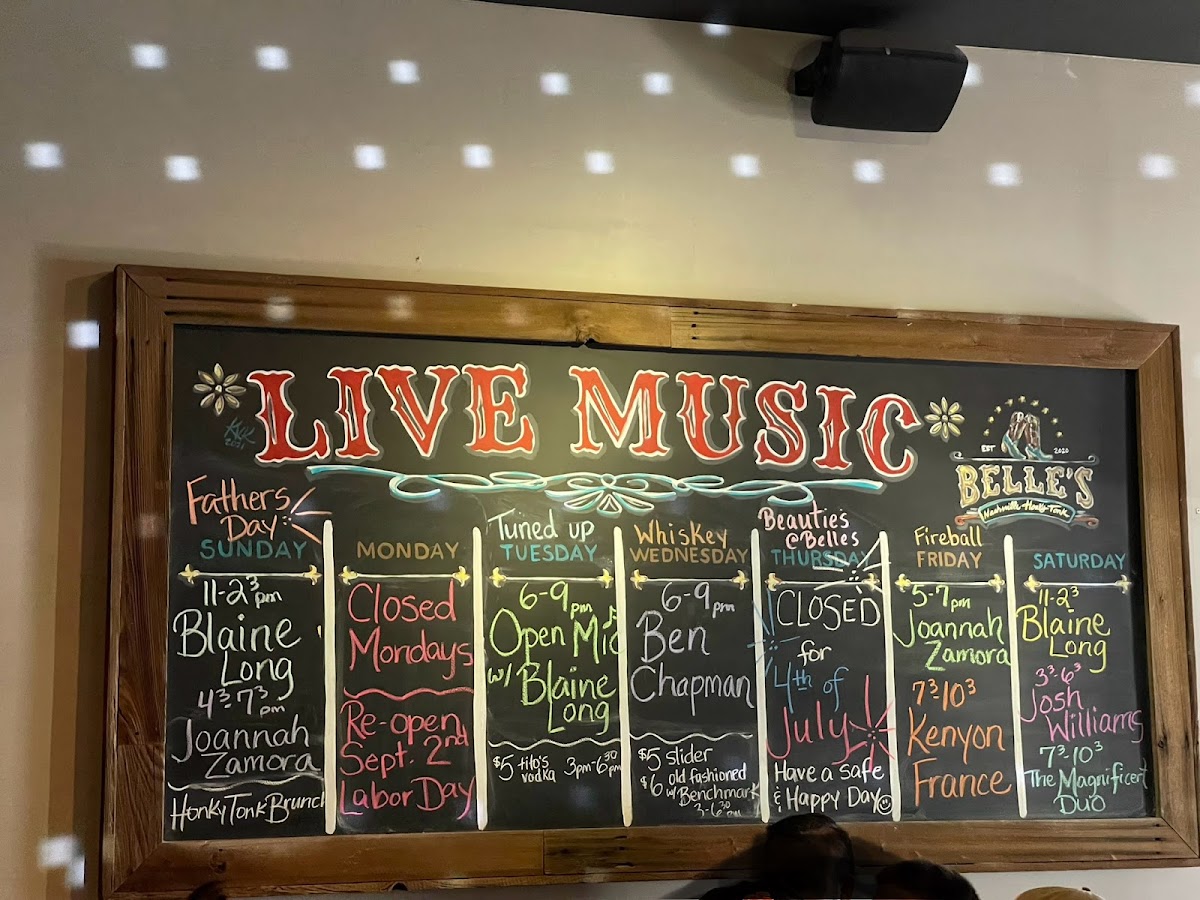 LIVE MUSIC
KKR
2021
EST 2020
BELLE'S
Nashville Honky Tonk
Fathers
Day
SUNDAY
11-2³pm
Blaine
Long
4³-7³pm
Joannah
Zamora
Honky Tonk Brunch
MONDAY
Closed
Mondays
Re-open
Sept. 2nd
Labor Day
Tuned up
TUESDAY
6-9pm
Open Mic
w/ Blaine
Long
$5 tito's
vodka
3pm-6³⁰pm
Whiskey
WEDNESDAY
6-9pm
Ben
Chapman
$5 slider
$6 old fashioned
w/ Benchmark
3-6³⁰pm
Beauties
@Belles
THURSDAY
CLOSED
for
4th of
July!
Have a safe
& Happy Day
Fireball
FRIDAY
5-7pm
Joannah
Zamora
7³-10³
Kenyon
France
SATURDAY
11-2³
Blaine
Long
3³-6³
Josh
Williams
7³-10³
The Magnificent
Duo